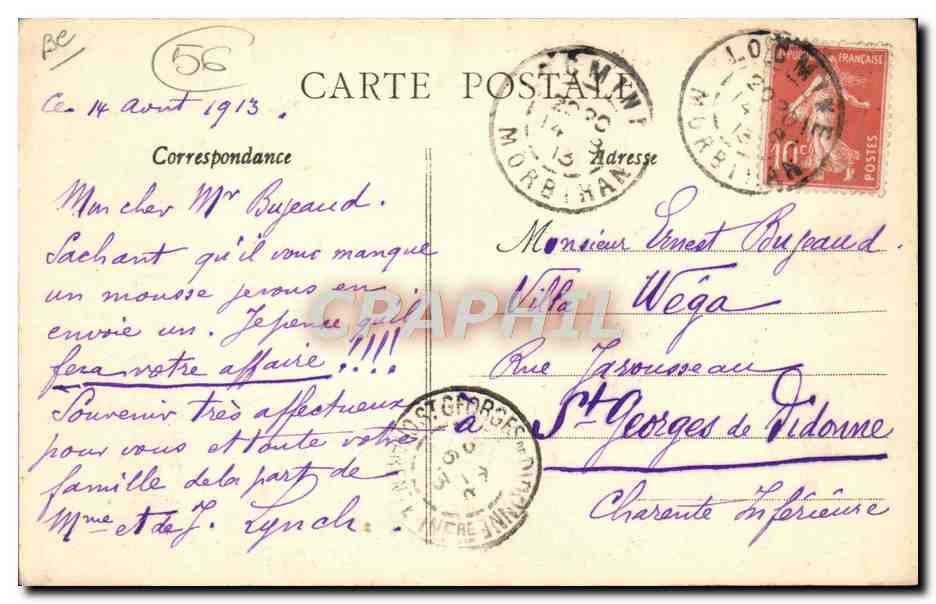 BC
56
CARTE POSTALE
Ce 14 Aout 1913.
Correspondance
Mon cher Mr Bujeaud.
Sachant qu'il vous manque
un mousse je vous en
envoie un. Je pence qu'il
fera votre affaire !!!!
Souvenir très affectueux
pour vous et toute votre
famille de la part de
Mme et de J. Lynch.
Adresse
Monsieur Ernest Bujeaud.
Villa Wéga
Rue Jarousseau
à St Georges de Didonne
Charente Inférieure
LOCMINE
MORBIHAN
MORBIHAN
ST GEORGES DE DIDONNE
INFRE
FRANÇAISE
10c
POSTES
CPAPHIL